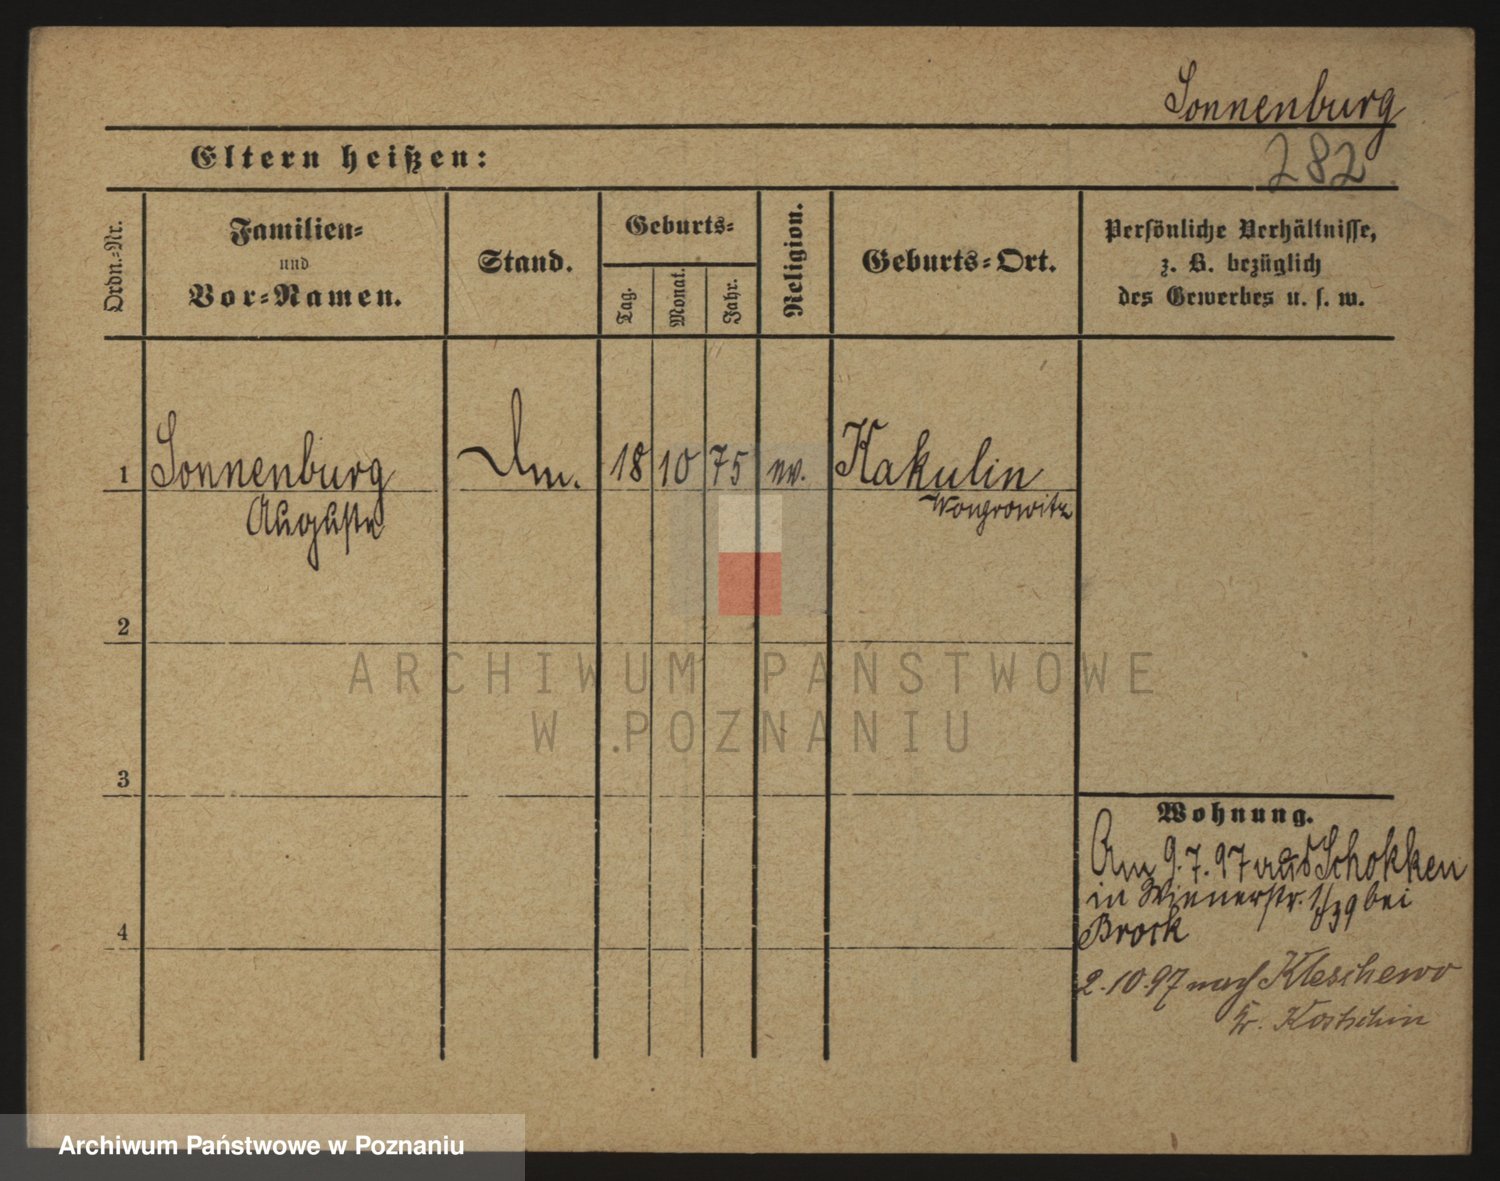 Sonnenburg
282
Eltern heißen:
Ordn.-Nr.
Familien-
und
Vor-Namen.
Stand.
Geburts-
Tag.
Monat.
Jahr.
Religion.
Geburts-Ort.
Persönliche Verhältnisse,
z. B. bezüglich
des Gewerbes u. s. w.
1 Sonnenburg 18 10 75 ev. Kakulin
Auguste Wongrowitz
2
3
4
Wohnung.
Am 9.7.97 aus Schokken
in Wienerstr. 1/39 bei
Brock
2.10.97 nach Kleschewo
b. Kostschin
ARCHIWUM PAŃSTWOWE
W POZNANIU
Archiwum Państwowe w Poznaniu